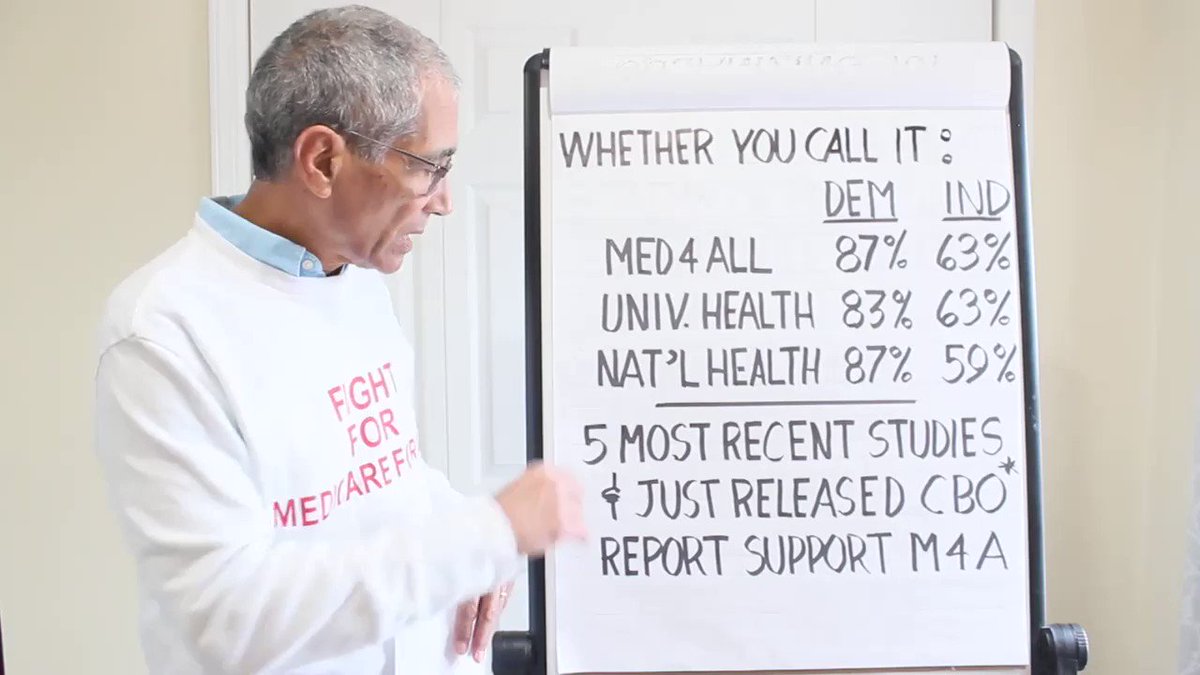 WHETHER YOU CALL IT:
DEM IND
MED 4 ALL 87% 63%
UNIV. HEALTH 83% 63%
NAT'L HEALTH 87% 59%
5 MOST RECENT STUDIES
& JUST RELEASED CBO*
REPORT SUPPORT M4A
FIGHT
FOR
MEDICARE FOR